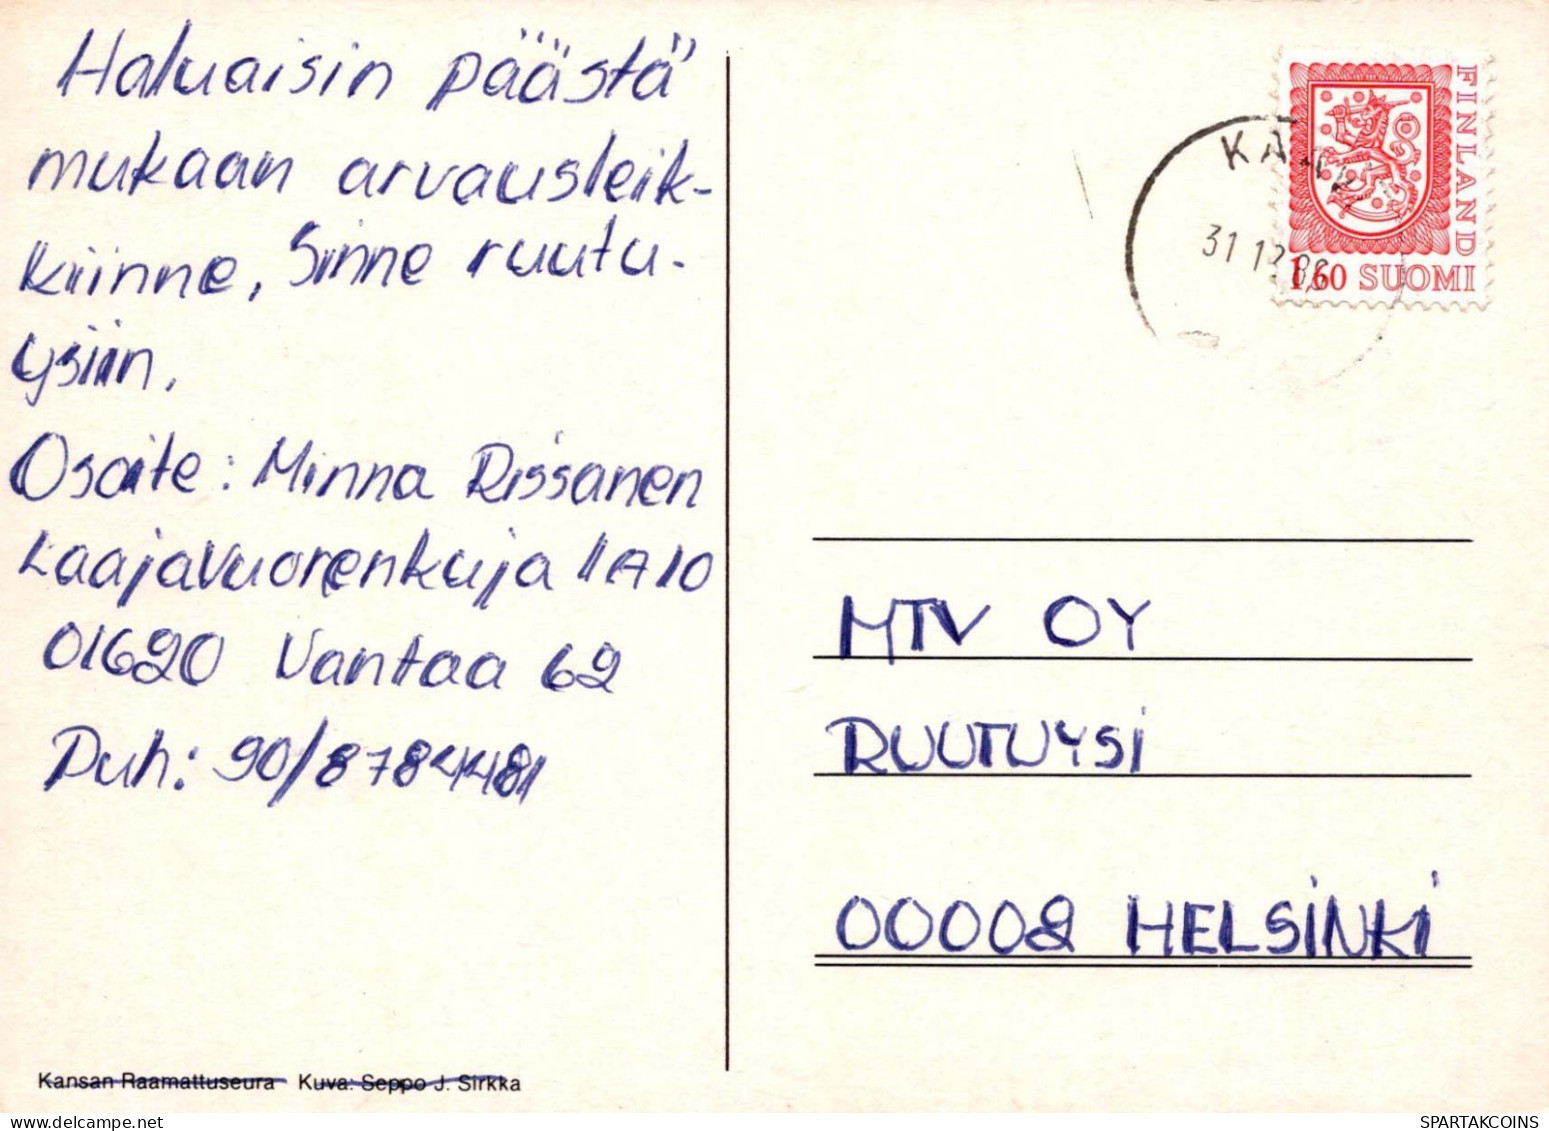 Haluaisin päästä
mukaan arvausleik-
kiinne, Sinne ruutu-
ysiin.
Osoite: Minna Rissanen
Laajavuorenkuja 1A10
01620 Vantaa 62
Puh: 90/8784481
Kansan Raamattuseura Kuva: Seppo J. Sirkka
FINLAND
1,60 SUOMI
31 12
MTV OY
RUUTUYSI
00002 HELSINKI
SPARTAKCOINS